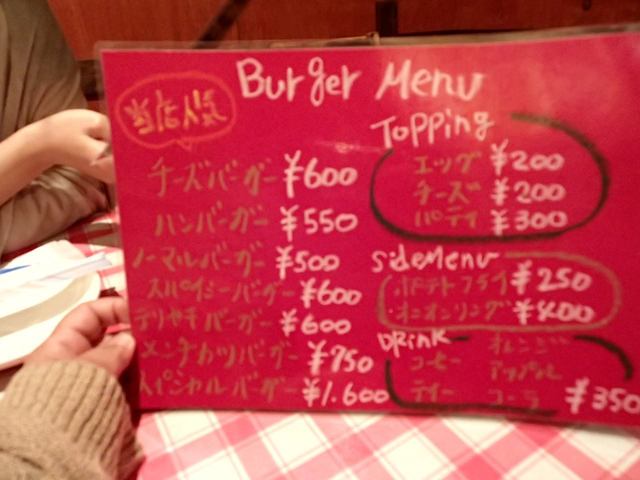 Burger Menu
当店人気
チーズバーガー ¥600
ハンバーガー ¥550
ノーマルバーガー ¥500
スパイシーバーガー ¥600
テリヤキバーガー ¥600
メンチカツバーガー ¥750
スペシャルバーガー ¥1.600
Topping
エッグ ¥200
チーズ ¥200
パティ ¥300
SideMenu
ポテトフライ ¥250
オニオンリング ¥400
Drink
コーヒー オレンジ
ティー アップル
コーラ ¥350